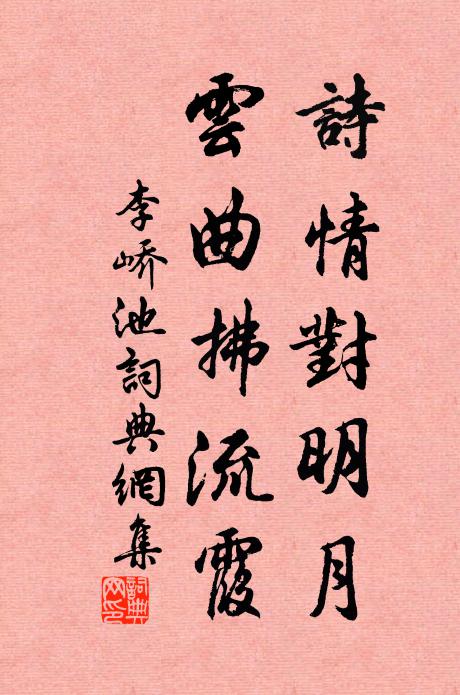 詩情對明月
雲曲拂流霞
李嶠池詞典網集
詞典網印